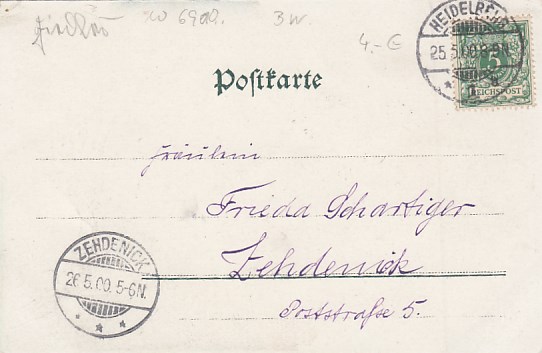 3 W.
4.- €
HEIDELBERG
25.5.00.8-9N.
5
REICHSPOST
Postkarte
Fräulein
Frieda Schartiger
Zehdenick
Poststraße 5.
ZEHDENICK
26.5.00.5-6N.